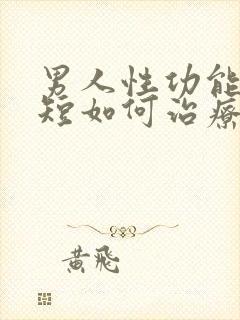 男人性功能
短如何治疗
黄飛